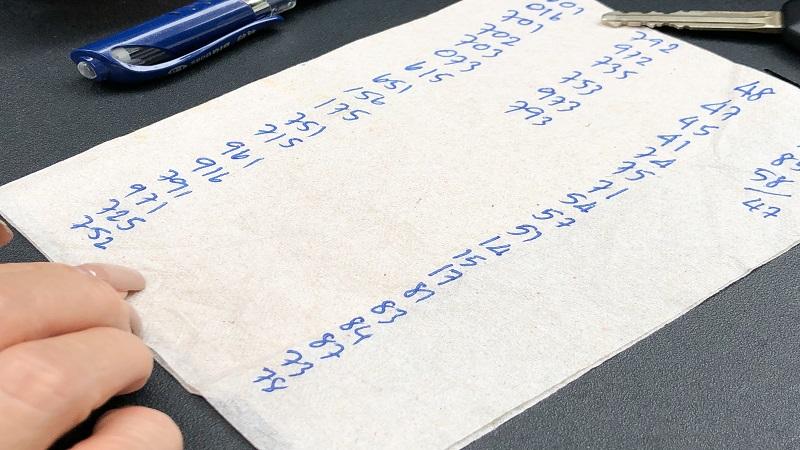 016
701
702
703
073
615
651
156
175
157
517
196
916
197
176
527
257
792
972
735
753
973
793
48
47
45
41
74
75
71
54
57
51
14
15
17
81
83
84
87
73
58/
47